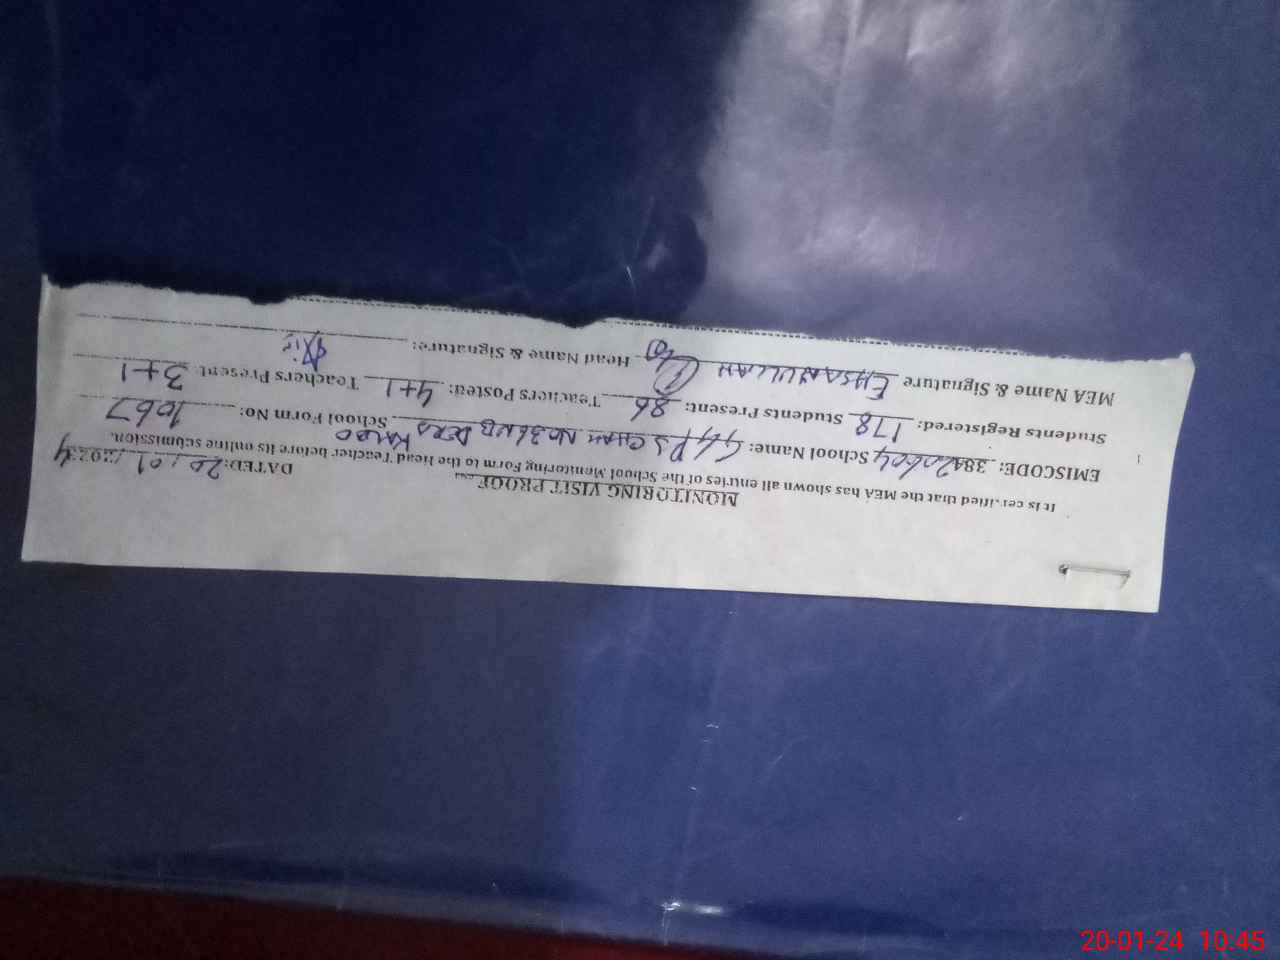 MONITORING VISIT PROOF
DATED: 20/01/2024
It is certified that the MEA has shown all entries of the School Monitoring Form to the Head Teacher before its online submission.
EMISCODE: School Name: GGPS CHAK NO 36 NB DERA KALOO School Form No: 1067
Students Registered: 178 Students Present: 86 Teachers Posted: 4+1 Teachers Present 3+1
MEA Name & Signature EHSANULLAH Head Name & Signature:
20-01-24 10:45